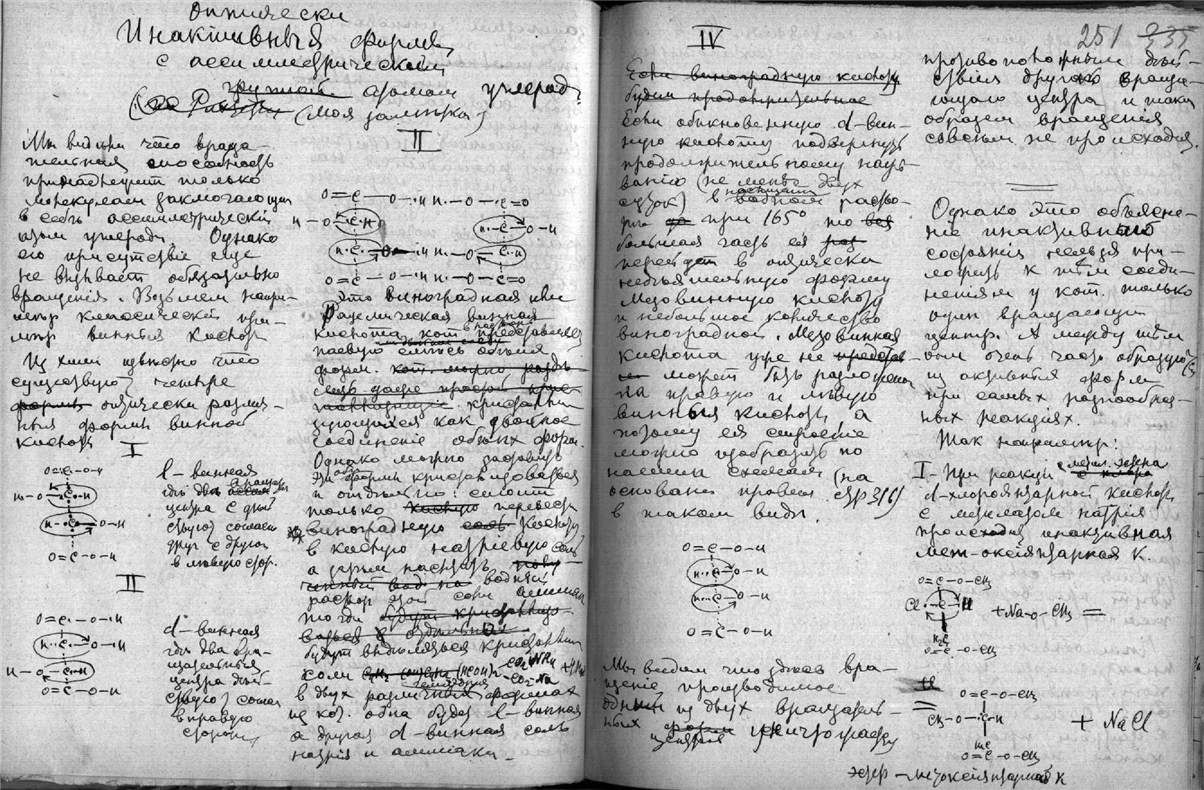 оптически
Инактивныя формы
с ассиметрическим
группой атомом углерода
(моя заметка)
Мы видим что враща-
тельная способность
принадлежит только
молекулам заключающим
в себе ассиметрический
атом углерода. Однако
его присутствие еще
не вызывает обязательно
вращения. Возьмем напри-
мер классический при-
мер винныя кислоты
Из химии известно что
существуют четыре
формы оптически различ-
ныя формы винной
кислоты
I
O=C-O-H
H-O-C-H
H-C-O-H
O=C-O-H
l-винная
где два вращающ
центра действуют
согласно
друг с другом
в левую стор.
II
O=C-O-H
H-C-O-H
H-O-C-H
O=C-O-H
d-винная
где два вра-
щательныя
центра дей-
ствуют соглас
вправую
сторону
II
O=C-O-H H-O-C=O
H-O-C-H H-C-O-H
H-C-O-H H-O-C-H
O=C-O-H H-O-C=O
это виноградная или
Рацемическая винная
кислота кот. представляет
равную смесь обеих
форм. кот. можно разде-
кристалли
зующихся как двойное
соединение обеих форм.
Однако можно заставить
эти формы кристаллизоваться
и отдельно: стоит
только перевести
виноградную соль кислоту
в кислую натриевую соль
а затем насытить
водный
раствор этой соли аммиаком
тогда будут кристаллизо-
ваться отдельныя
будут выделяться кристаллы
соли (HCOH)2-CO2NH4 CO2-Na +H2O
в двух различных формах
из кот. одна будет l-винная
а другая d-винная соль
натрия и аммиака.
IV
Если виноградную кислоту
будем продолжительное
Если обыкновенную d-вин-
ную кислоту подвергнуть
продолжительному нагре-
ванию (не менее двух
суток) в насыщен водном раство-
ре при 165° то вся
большая часть ея раз
перейдет в оптически
недеятельную форму
Мезовинную кислоту
и небольшое количество
виноградной. Мезовинная
кислота уже не представ-
может быть разложена
на правую и левую
винныя кислоты, а
потому ея строение
можно изобразить по
нашим схемам (на
основании правил. стр 316)
в таком виде.
O=C-O-H
H-C-O-H
H-C-O-H
O=C-O-H
Мы видим что здесь вра-
щение производимое
одним из двух вращатель-
ных форм центров уничтожается
251 235
противоположным дей-
ствием другого враща-
ющаго центра и таким
образом вращения
совсем не происходит.
Однако это объясне-
ние инактивнаго
состояния нельзя при-
ложить к тем соеди-
нениям у кот. только
один вращающий
центр. А между тем
они очень часто образуются
из активных форм
при самых разнообраз-
ных реакциях.
Так например:
I-При реакции метил. эфира
d-хлороянтарной кислоты
с метилатом натрия
происходит инактивная
мет-оксиянтарная к.
O=C-O-CH3
Cl-C-H + Na-O-CH3 =
H2C
O=C-O-CH3
=
O=C-O-CH3
CH3-O-C-H + NaCl
H2C
O=C-O-CH3
эфир-метоксиянтарной к